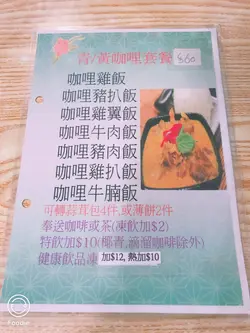 青/黃咖哩套餐 $60
咖哩雞飯
咖哩豬扒飯
咖哩雞翼飯
咖哩牛肉飯
咖哩豬肉飯
咖哩雞扒飯
咖哩牛腩飯
可轉蒜茸包4件,或薄餅2件
奉送咖啡或茶(凍飲加$2)
特飲加$10(椰青,滴溜咖啡除外)
健康飲品凍加$12, 熱加$10
Foodie